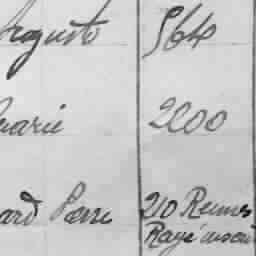 Auguste 564
Marie 2200
ard Pierre 210 Rennes
Rayé